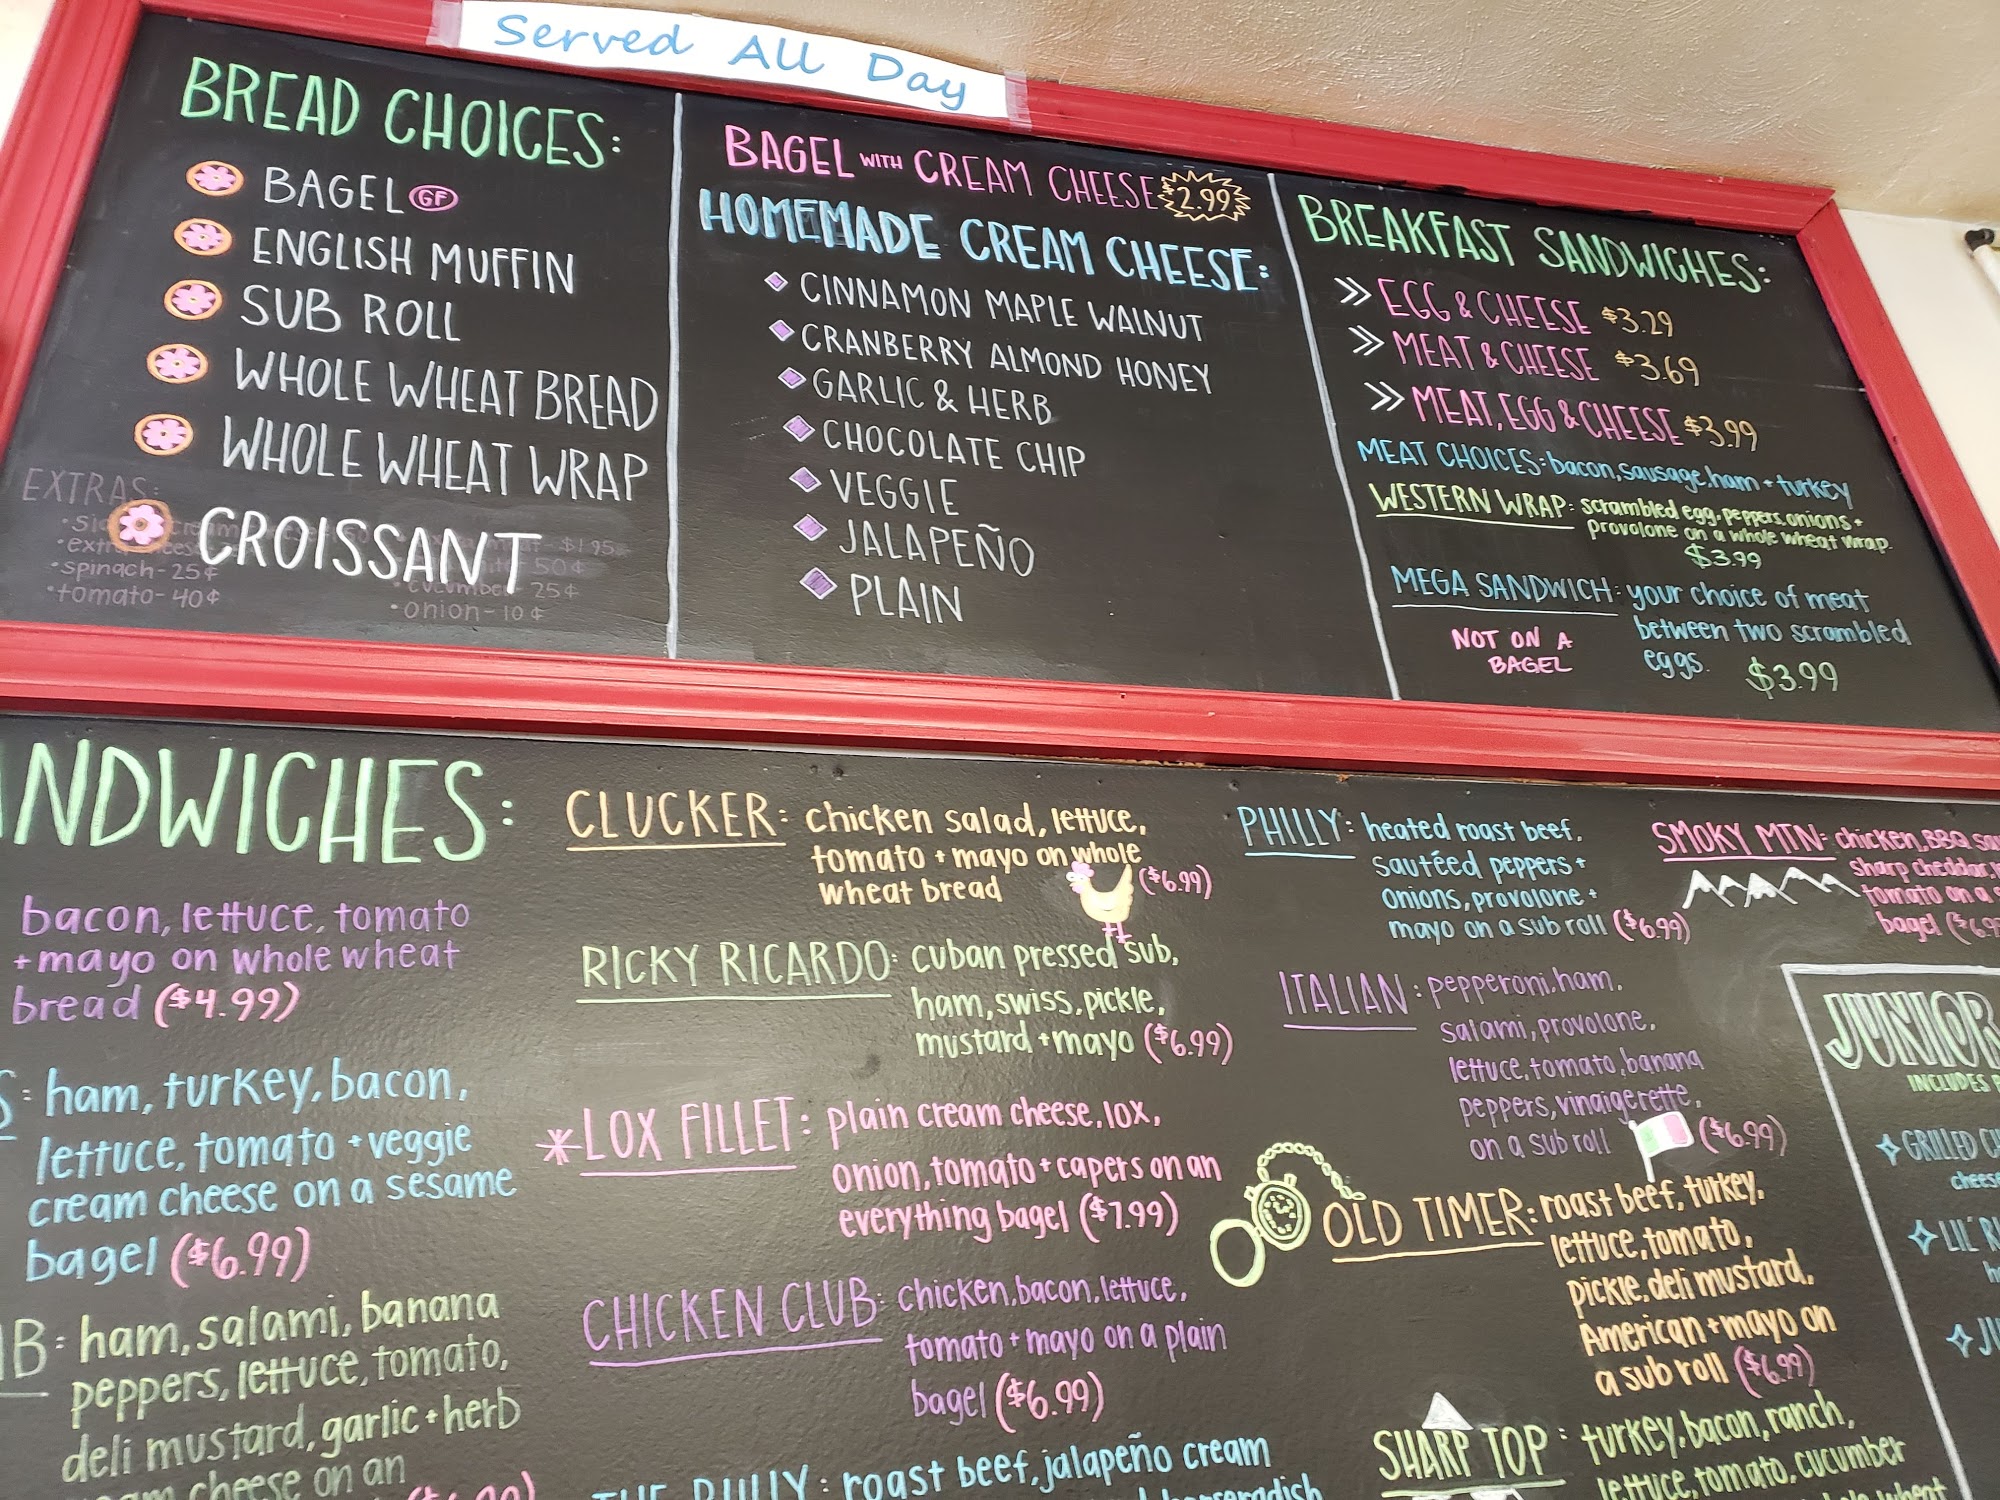 Served All Day
BREAD CHOICES:
BAGEL GF
ENGLISH MUFFIN
SUB ROLL
WHOLE WHEAT BREAD
WHOLE WHEAT WRAP
CROISSANT
EXTRAS:
• spinach - 25¢
• tomato - 40¢
$1.95
50¢
• cucumber - 25¢
• onion - 10¢
BAGEL WITH CREAM CHEESE $2.99
HOMEMADE CREAM CHEESE:
CINNAMON MAPLE WALNUT
CRANBERRY ALMOND HONEY
GARLIC & HERB
CHOCOLATE CHIP
VEGGIE
JALAPEÑO
PLAIN
BREAKFAST SANDWICHES:
EGG & CHEESE $3.29
MEAT & CHEESE $3.69
MEAT, EGG & CHEESE $3.99
MEAT CHOICES: bacon, sausage, ham + turkey
WESTERN WRAP: scrambled egg, peppers, onions +
provolone on a whole wheat wrap.
$3.99
MEGA SANDWICH: your choice of meat
between two scrambled
eggs. $3.99
NOT ON A
BAGEL
NDWICHES:
bacon, lettuce, tomato
+ mayo on whole wheat
bread ($4.99)
S: ham, turkey, bacon,
lettuce, tomato + veggie
cream cheese on a sesame
bagel ($6.99)
B: ham, salami, banana
peppers, lettuce, tomato,
deli mustard, garlic + herb
cheese on an
CLUCKER: chicken salad, lettuce,
tomato + mayo on whole
wheat bread ($6.99)
RICKY RICARDO: cuban pressed sub,
ham, swiss, pickle,
mustard + mayo ($6.99)
*LOX FILLET: plain cream cheese, lox,
onion, tomato + capers on an
everything bagel ($7.99)
CHICKEN CLUB: chicken, bacon, lettuce,
tomato + mayo on a plain
bagel ($6.99)
roast beef, jalapeño cream
horseradish
PHILLY: heated roast beef,
sautéed peppers +
onions, provolone +
mayo on a sub roll ($6.99)
ITALIAN: pepperoni, ham,
salami, provolone,
lettuce, tomato, banana
peppers, vinaigerette,
on a sub roll ($6.99)
OLD TIMER: roast beef, turkey,
lettuce, tomato,
pickle, deli mustard,
American + mayo on
a sub roll ($6.99)
SHARP TOP: turkey, bacon, ranch,
lettuce, tomato, cucumber
wheat
SMOKY MTN: chicken, BBQ
sharp cheddar,
tomato on a
bagel
JUNIOR
INCLUDES
GRILLED
cheese
LIL'